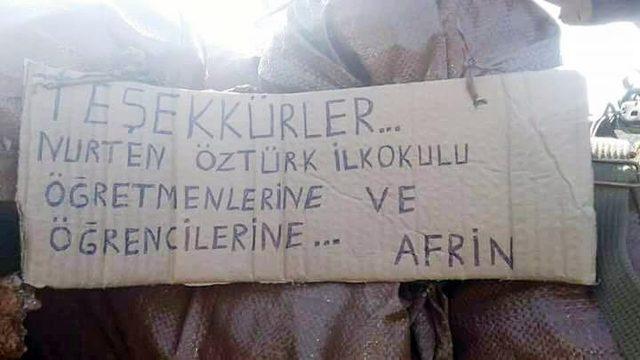 TEŞEKKÜRLER...
NURTEN ÖZTÜRK İLKOKULU
ÖĞRETMENLERİNE VE
ÖĞRENCİLERİNE... AFRİN